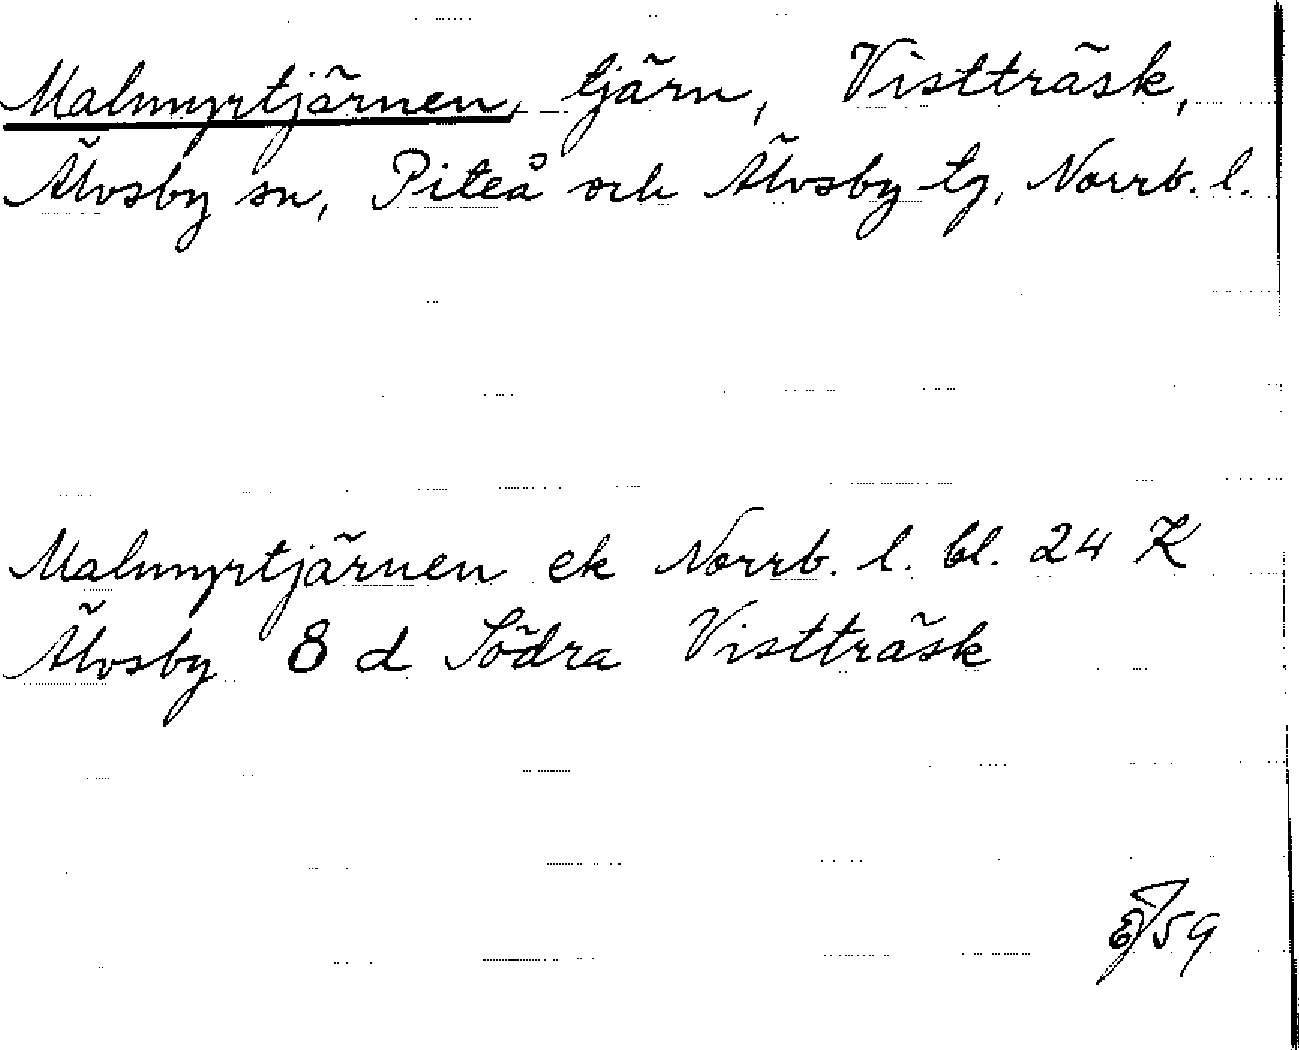 Malmyrtjärnen, tjärn, Vistträsk,
Älvsby sn, Piteå och Älvsby tg, Norrb. l.
Malmyrtjärnen ek Norrb. l. bl. 24 K
Älvsby 8 d Södra Vistträsk
59